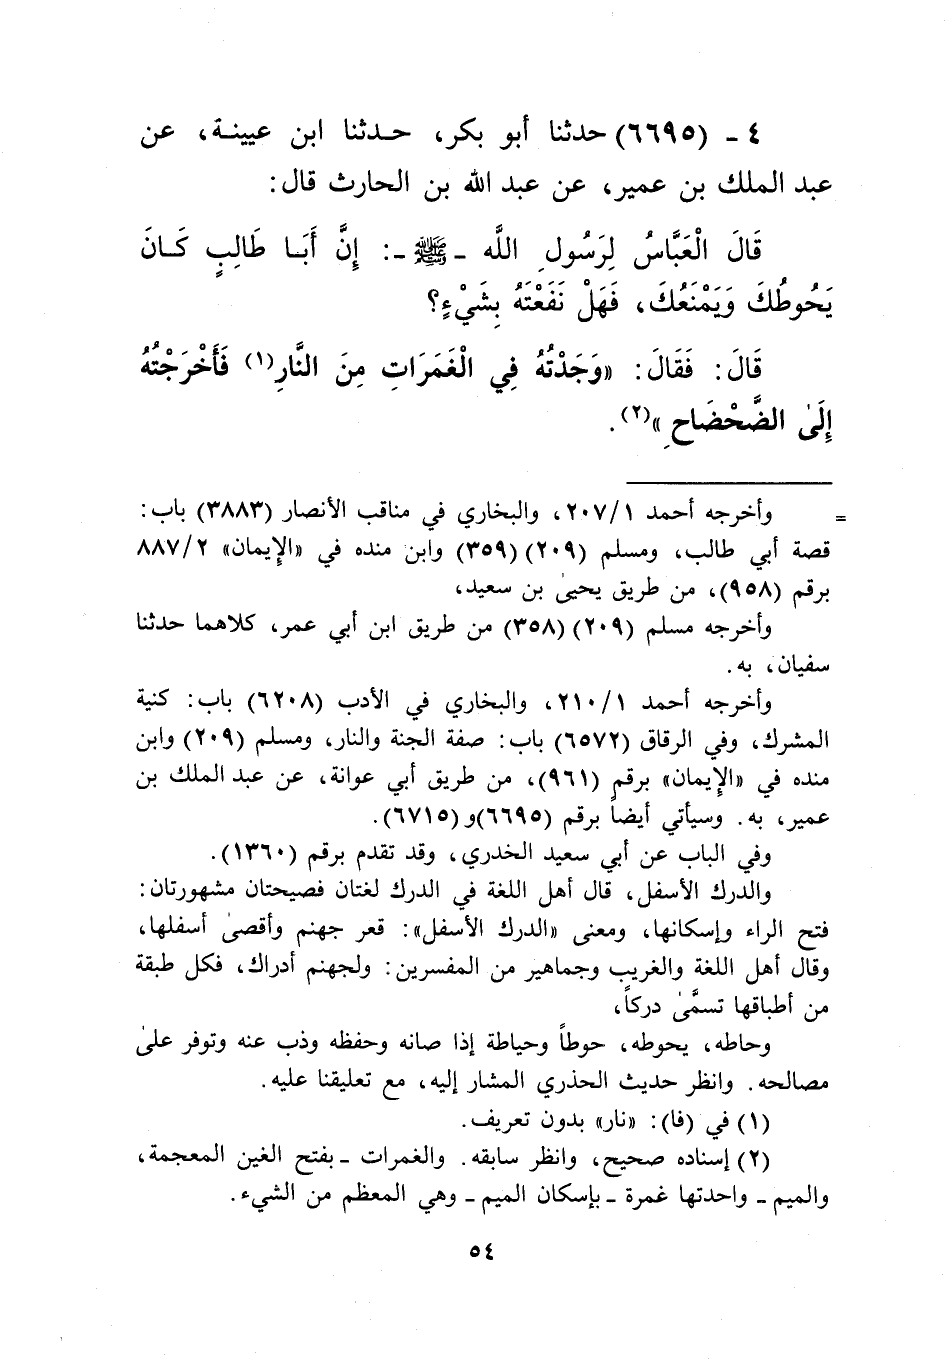 ٤ - (٦٦٩٥) حدثنا أبو بكر، حـدثنا ابن عيينـة، عن
عبد الملك بن عمير، عن عبد الله بن الحارث قال:
قَالَ الْعَبَّاسُ لِرَسُولِ اللَّه - ﷺ -: إِنَّ أَبَـا طَالِبٍ كَـانَ
يَحُوطُكَ وَيَمْنَعُكَ، فَهَلْ نَفَعْتَهُ بِشَيْءٍ؟
قَالَ: فَقَالَ: «وَجَدْتُهُ فِي الْغَمَرَاتِ مِنَ النَّارِ(١) فَأَخْرَجْتُهُ
إِلَىٰ الضَّحْضَاحِ»(٢).
= وأخرجه أحمد ٢٠٧/١، والبخاري في مناقب الأنصار (٣٨٨٣) باب:
قصة أبي طالب، ومسلم (٢٠٩) (٣٥٩) وابن منده في «الإِيمان» ٨٨٧/٢
برقم (٩٥٨)، من طريق يحيىٰ بن سعيد،
وأخرجه مسلم (٢٠٩) (٣٥٨) من طريق ابن أبي عمر، كلاهما حدثنا
سفيان، به.
وأخرجه أحمد ٢١٠/١، والبخاري في الأدب (٦٢٠٨) باب: كنية
المشرك، وفي الرقاق (٦٥٧٢) باب: صفة الجنة والنار، ومسلم (٢٠٩) وابن
منده في «الإِيمان» برقم (٩٦١)، من طريق أبي عوانة، عن عبد الملك بن
عمير، به. وسيأتي أيضاً برقم (٦٦٩٥) و (٦٧١٥).
وفي الباب عن أبي سعيد الخدري، وقد تقدم برقم (١٣٦٠).
والدرك الأسفل، قال أهل اللغة في الدرك لغتان فصيحتان مشهورتان:
فتح الراء وإسكانها، ومعنى «الدرك الأسفل»: قعر جهنم وأقصىٰ أسفلها،
وقال أهل اللغة والغريب وجماهير من المفسرين: ولجهنم أدراك، فكل طبقة
من أطباقها تسمَّىٰ دركاً،
وحاطه، يحوطه، حوطاً وحياطة إذا صانه وحفظه وذب عنه وتوفر علىٰ
مصالحه. وانظر حديث الحذري المشار إليه، مع تعليقنا عليه.
(١) في (فا): «نار» بدون تعريف.
(٢) إسناده صحيح، وانظر سابقه. والغمرات - بفتح الغين المعجمة،
والميم - واحدتها غمرة - بإسكان الميم - وهي المعظم من الشيء.
٥٤